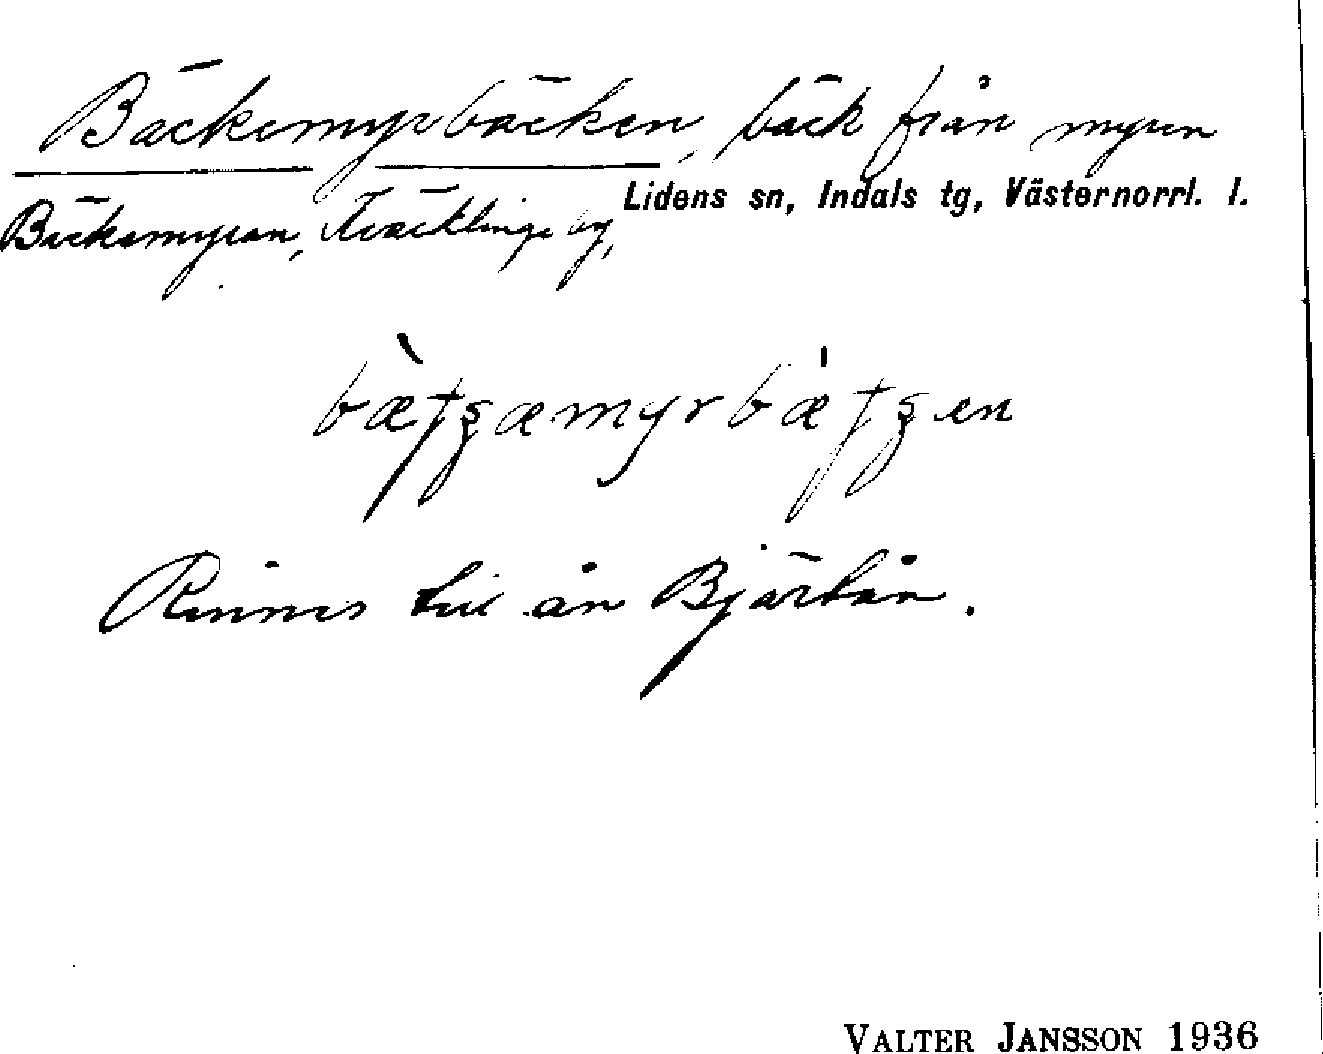 Bäckemyrbäcken, bäck från myren
Lidens sn, Indals tg, Västernorrl. l.
Bäckemyran, by,
Rinner till ån Bjärtån.
VALTER JANSSON 1936